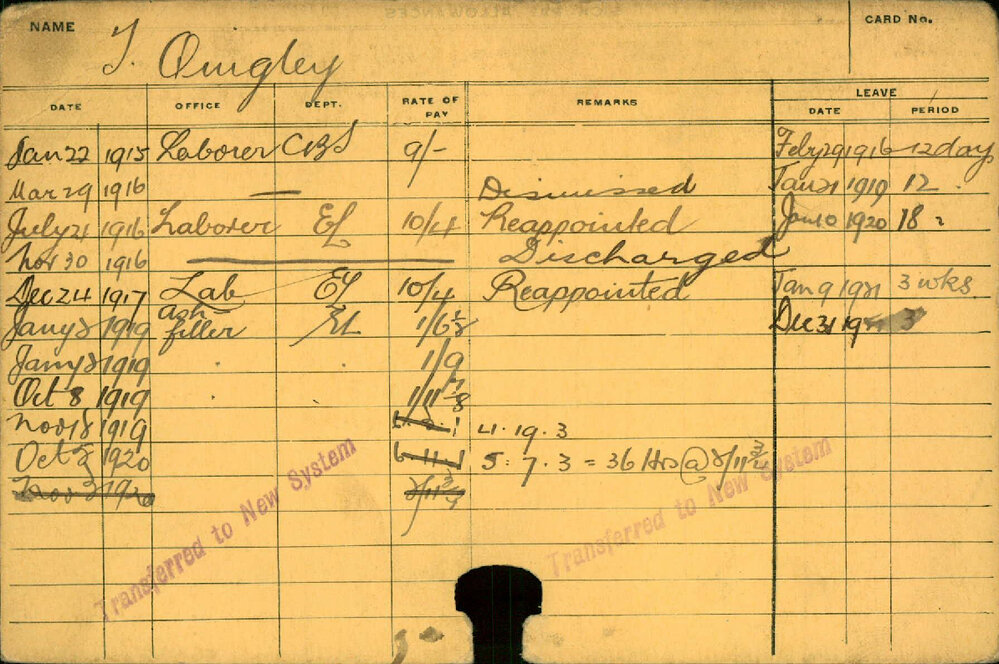 NAME T. Quigley CARD No.
DATE OFFICE DEPT. RATE OF PAY REMARKS LEAVE
DATE PERIOD
Jan 22 1915 Laborer CBS 9/- Feby 29 1916 12 days
Mar 29 1916 — Dismissed Jan 21 1919 12
July 21 1916 Laborer EL 10/4 Reappointed Jan 10 1920 18
Nov 30 1916 Discharged
Dec 24 1917 Lab EL 10/4 Reappointed Jan 9 1921 3 wks.
Jany 3 1919 Ash filler EL 1/6½ Dec 31 3
Jany 3 1919 1/9
Oct 8 1919 1/11⅞
Nov 18 1919 4.19.3
Oct 1920 5.7.3 = 36 Hrs @ 2/11¾
Nov 3 1920 2/11¾
Transferred to New System
Transferred to New System